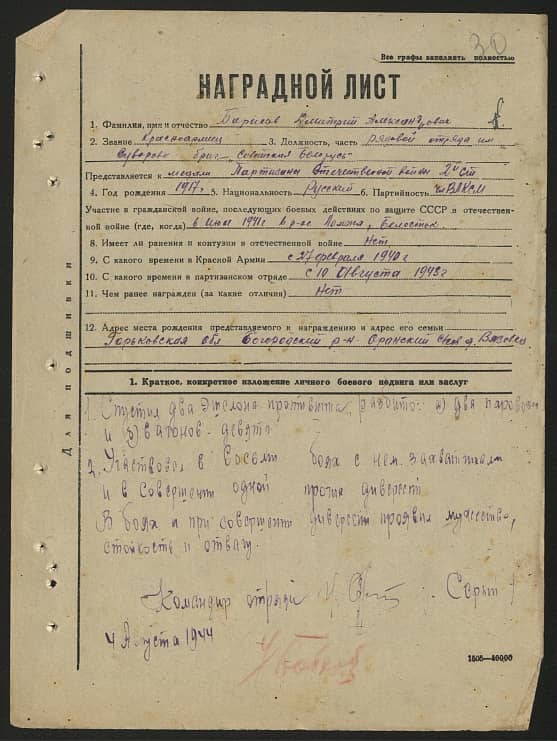 30
Все графы заполнять полностью
НАГРАДНОЙ ЛИСТ
1. Фамилия, имя и отчество Дмитрий Александрович
2. Звание Красноармеец 3. Должность, часть рядовой отряда им
Суворова бриг „Советская Беларусь"
Представляется к медали Партизану Отечественной войны 2й ст
4. Год рождения 1917г 5. Национальность Русский 6. Партийность чл ВЛКСМ
Участие в гражданской войне, последующих боевых действиях по защите СССР и отечествен-
ной войне (где, когда) в Июне 1941г в р-не Ломжа, Белосток
8. Имеет ли ранения и контузии в отечественной войне Нет
9. С какого времени в Красной Армии с 27 февраля 1940 г
10. С какого времени в партизанском отряде с 10 Августа 1943г
11. Чем ранее награжден (за какие отличия) Нет
12. Адрес места рождения представляемого к награждению и адрес его семьи
Горьковская обл Богородский р-н Оранский д.
Для подшивки
1. Краткое, конкретное изложение личного боевого подвига или заслуг
1. Спустил два эшелона противника, разбито: а) два паровоза
и б) вагонов девять
2. Участвовал в восьми боях с нем. захватчиками
и в совершении одной против диверсии
В боях и при совершении диверсии проявил мужество,
стойкость и отвагу.
Командир отряда
4 Августа 1944
1505—40000